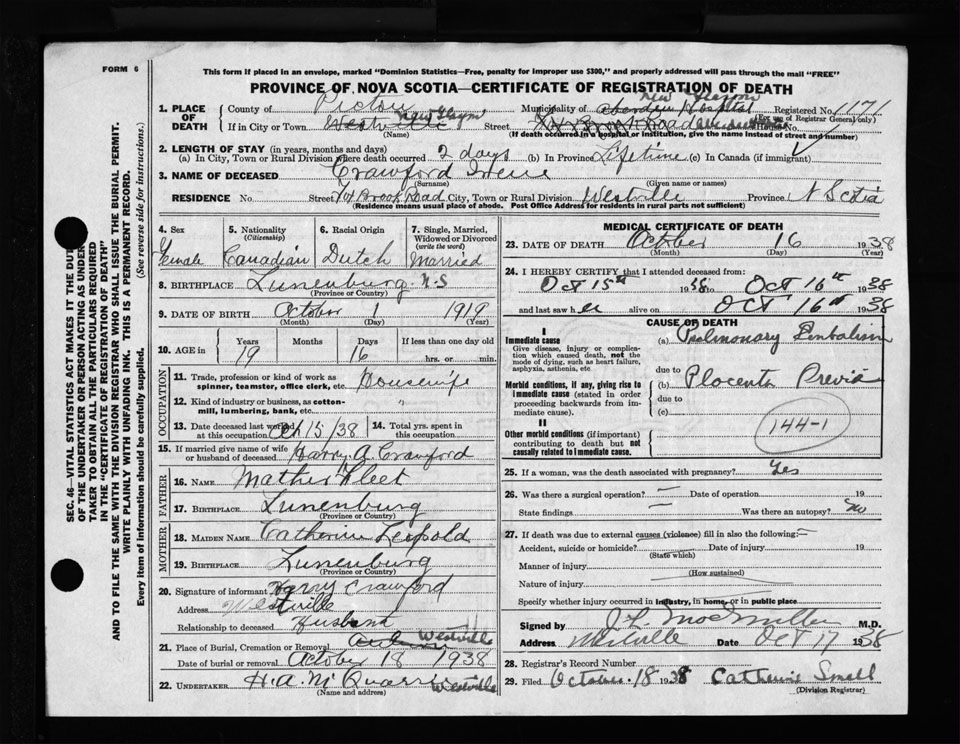 FORM 6
This form if placed in an envelope, marked "Dominion Statistics—Free, penalty for improper use $300," and properly addressed will pass through the mail "FREE"
PROVINCE OF NOVA SCOTIA—CERTIFICATE OF REGISTRATION OF DEATH
1. PLACE OF DEATH County of Pictou Municipality of New Aberdeen Hospital Registered No. 1171
(For use of Registrar General only)
If in City or Town Westville New Street House No.
(Name) (If death occurred in a hospital or institution, give the name instead of street and number)
2. LENGTH OF STAY (in years, months and days)
(a) In City, Town or Rural Division where death occurred 2 days (b) In Province Lifetime (c) In Canada (if immigrant)
3. NAME OF DECEASED Crawford Irene
(Surname) (Given name or names)
RESIDENCE No. Street Brook Road City, Town or Rural Division Westville Province N Scotia
(Residence means usual place of abode. Post Office Address for residents in rural parts not sufficient)
SEC. 46—VITAL STATISTICS ACT MAKES IT THE DUTY
OF THE UNDERTAKER OR PERSON ACTING AS UNDER-
TAKER TO OBTAIN ALL THE PARTICULARS REQUIRED
IN THE "CERTIFICATE OF REGISTRATION OF DEATH"
AND TO FILE THE SAME WITH THE DIVISION REGISTRAR WHO SHALL ISSUE THE BURIAL PERMIT.
WRITE PLAINLY WITH UNFADING INK. THIS IS A PERMANENT RECORD.
Every item of information should be carefully supplied. (See reverse side for instructions.)
4. Sex Female
5. Nationality (Citizenship) Canadian
6. Racial Origin Dutch
7. Single, Married, Widowed or Divorced (write the word) Married
8. BIRTHPLACE Lunenburg N.S
(Province or Country)
9. DATE OF BIRTH October 1 1919
(Month) (Day) (Year)
10. AGE in Years 19 Months Days 16 If less than one day old hrs. or min.
OCCUPATION
11. Trade, profession or kind of work as spinner, teamster, office clerk, etc. Housewife
12. Kind of industry or business, as cotton-mill, lumbering, bank, etc. "
13. Date deceased last worked at this occupation Oct 15/38
14. Total yrs. spent in this occupation
15. If married give name of wife or husband of deceased Harry A Crawford
FATHER
16. NAME Mather
17. BIRTHPLACE Lunenburg
(Province or Country)
MOTHER
18. MAIDEN NAME Catherine Leopold
19. BIRTHPLACE Lunenburg
(Province or Country)
20. Signature of informant Harry Crawford
Address Westville
Relationship to deceased Husband
21. Place of Burial, Cremation or Removal Westville
Date of burial or removal October 18 1938
22. UNDERTAKER H. A. McQuarrie Westville
(Name and address)
MEDICAL CERTIFICATE OF DEATH
23. DATE OF DEATH October 16 1938
(Month) (Day) (Year)
24. I HEREBY CERTIFY that I attended deceased from
Oct 15th 1938 to Oct 16th 1938
and last saw her alive on Oct 16th 1938
CAUSE OF DEATH
I
Immediate cause
Give disease, injury or complication which caused death, not the mode of dying, such as heart failure, asphyxia, asthenia, etc.
(a) Pulmonary Embolism
due to
Morbid conditions, if any, giving rise to immediate cause (stated in order proceeding backwards from immediate cause).
(b) Placenta Previa
due to
(c)
II
Other morbid conditions (if important) contributing to death but not causally related to immediate cause.
144-1
25. If a woman, was the death associated with pregnancy? Yes
26. Was there a surgical operation? — Date of operation 19
State findings — Was there an autopsy? No
27. If death was due to external causes (violence) fill in also the following:—
Accident, suicide or homicide? Date of injury 19
(State which)
Manner of injury
(How sustained)
Nature of injury
Specify whether injury occurred in industry, in home, or in public place
Signed by J. F. MacMillan M.D.
Address Westville Date Oct 17 1938
28. Registrar's Record Number
29. Filed October 18 1938 Catherine Small
(Division Registrar)